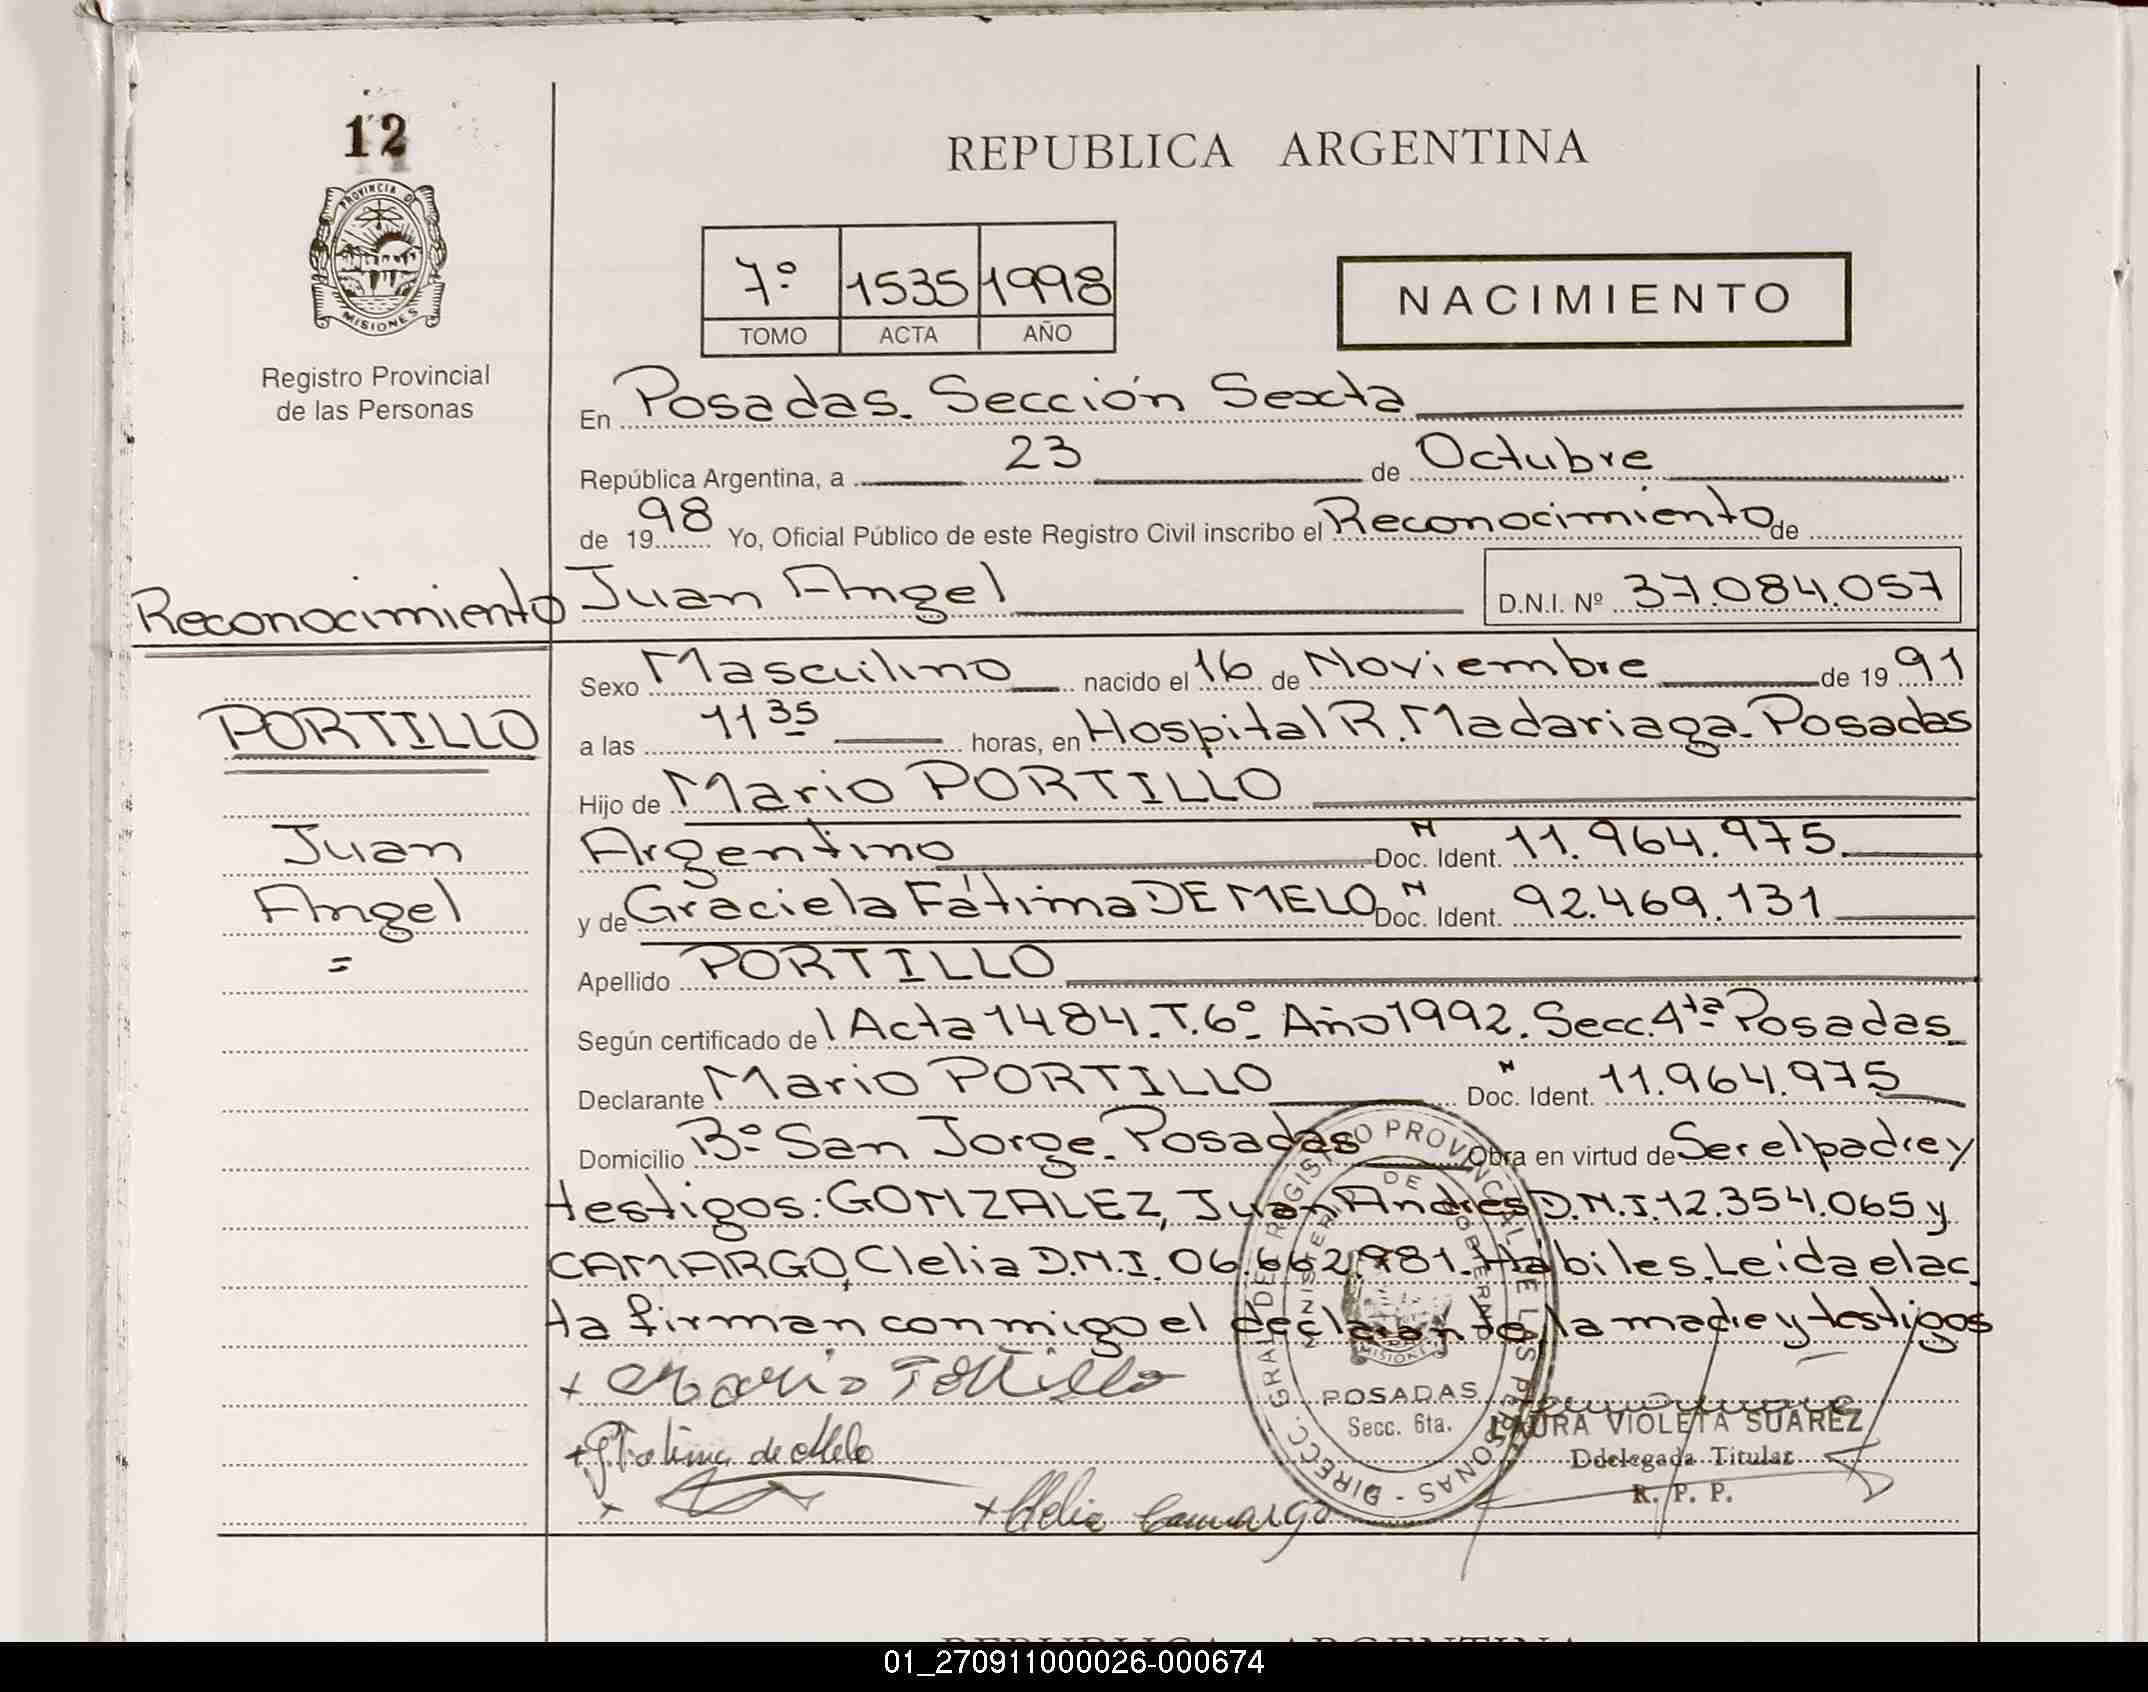 12
PROVINCIA DE
MISIONES
Registro Provincial
de las Personas
REPUBLICA ARGENTINA
7º 1535 1998
TOMO ACTA AÑO
NACIMIENTO
En Posadas. Sección Sexta
República Argentina, a 23 de Octubre
de 1998 Yo, Oficial Público de este Registro Civil inscribo el Reconocimiento de
Juan Angel D.N.I. Nº 37.084.057
Reconocimiento
PORTILLO
Juan
Angel
=
Sexo Masculino nacido el 16 de Noviembre de 1991
a las 11 35 horas, en Hospital R. Madariaga. Posadas
Hijo de Mario PORTILLO
Argentino Doc. N Ident. 11.964.975
y de Graciela Fátima DE MELO Doc. N Ident. 92.469.131
Apellido PORTILLO
Según certificado de l Acta 1484. T. 6º Año 1992. Secc. 4ta Posadas
Declarante Mario PORTILLO Doc. N Ident. 11.964.975
Domicilio Bº San Jorge. Posadas Obra en virtud de Ser el padre y
testigos: GONZALEZ, Juan Andres D.N.I. 12.354.065 y
CAMARGO, Clelia D.N.I. 06.662.981. Hábiles. Leída el ac
ta firman conmigo el declarante, la madre y testigos
Mario Portillo
G. Fatima de Melo
Clelia Camargo
DIRECC. GRAL DE REGISTRO PROVINCIAL DE LAS PERSONAS -
MINISTERIO DE GOBIERNO
MISIONES
POSADAS
Secc. 6ta.
LAURA VIOLETA SUAREZ
Ddelegada Titular
R. P. P.
REPUBLICA ARGENTINA
01_270911000026-000674